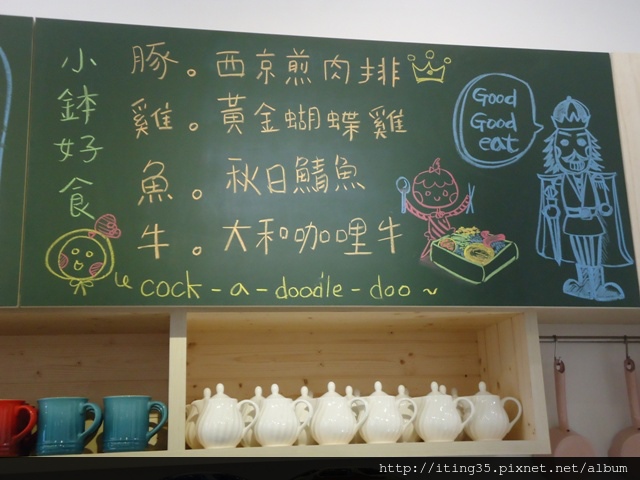 小鉢好食
豚。西京煎肉排
雞。黃金蝴蝶雞
魚。秋日鯖魚
牛。大和咖哩牛
cock-a-doodle-doo~
Good
Good
eat
http://iting35.pixnet.net/album